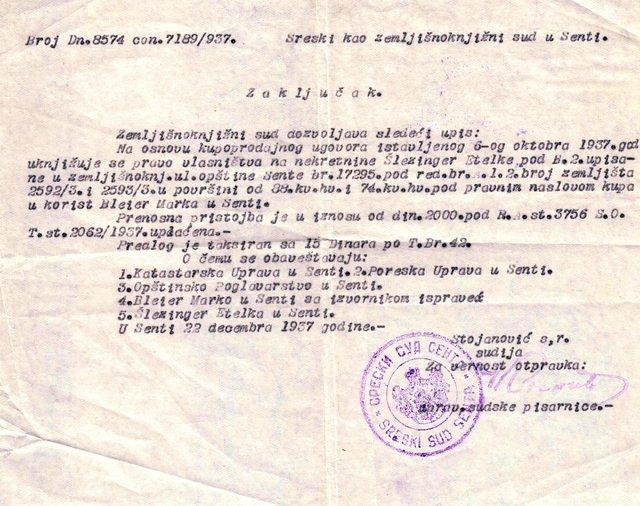 Broj Dn.8574 con.7189/937. Sreski kao zemljišnoknjižni sud u Senti.
Z a k l j u č a k.
Zemljišnoknjižni sud dozvoljava sledeći upis:
Na osnovu kupoprodajnog ugovora istavljenog 6-og oktobra 1937.god
uknjižuje se pravo vlasništva na nekretnine Šlezinger Etelke pod B.2.upisa-
ne u zemljišnoknj.ul.opštine Sente br.17295.pod red.br.A.1.2.broj zemljišta
2592/3.i 2593/3.u površini od 38.kv.hv.i 74.kv.hv.pod pravnim naslovom kupa
u korist Bleier Marka u Senti.
Prenosna pristojba je u iznosu od din.2000.pod R.A.st.3756 S.O.
T.st.2062/1937.uplaćena.-
Prealog je taksiran sa 15 Dinara po T.Br.42.
O čemu se obaveštavaju:
1.Katastarska Uprava u Senti.2.Poreska Uprava u Senti.
3.Opštinsko Poglavarstvo u Senti.
4.Bleier Marko u Senti sa izvornikom isprave
5.Šlezinger Etelka u Senti.
U Senti 22 decembra 1937 godine.-
Stojanović s,r.
sudija
Za vernost otpravka:
uprav.sudske pisarnice.-
СРЕСКИ СУД СЕНТА
SRESKI SUD SENTA